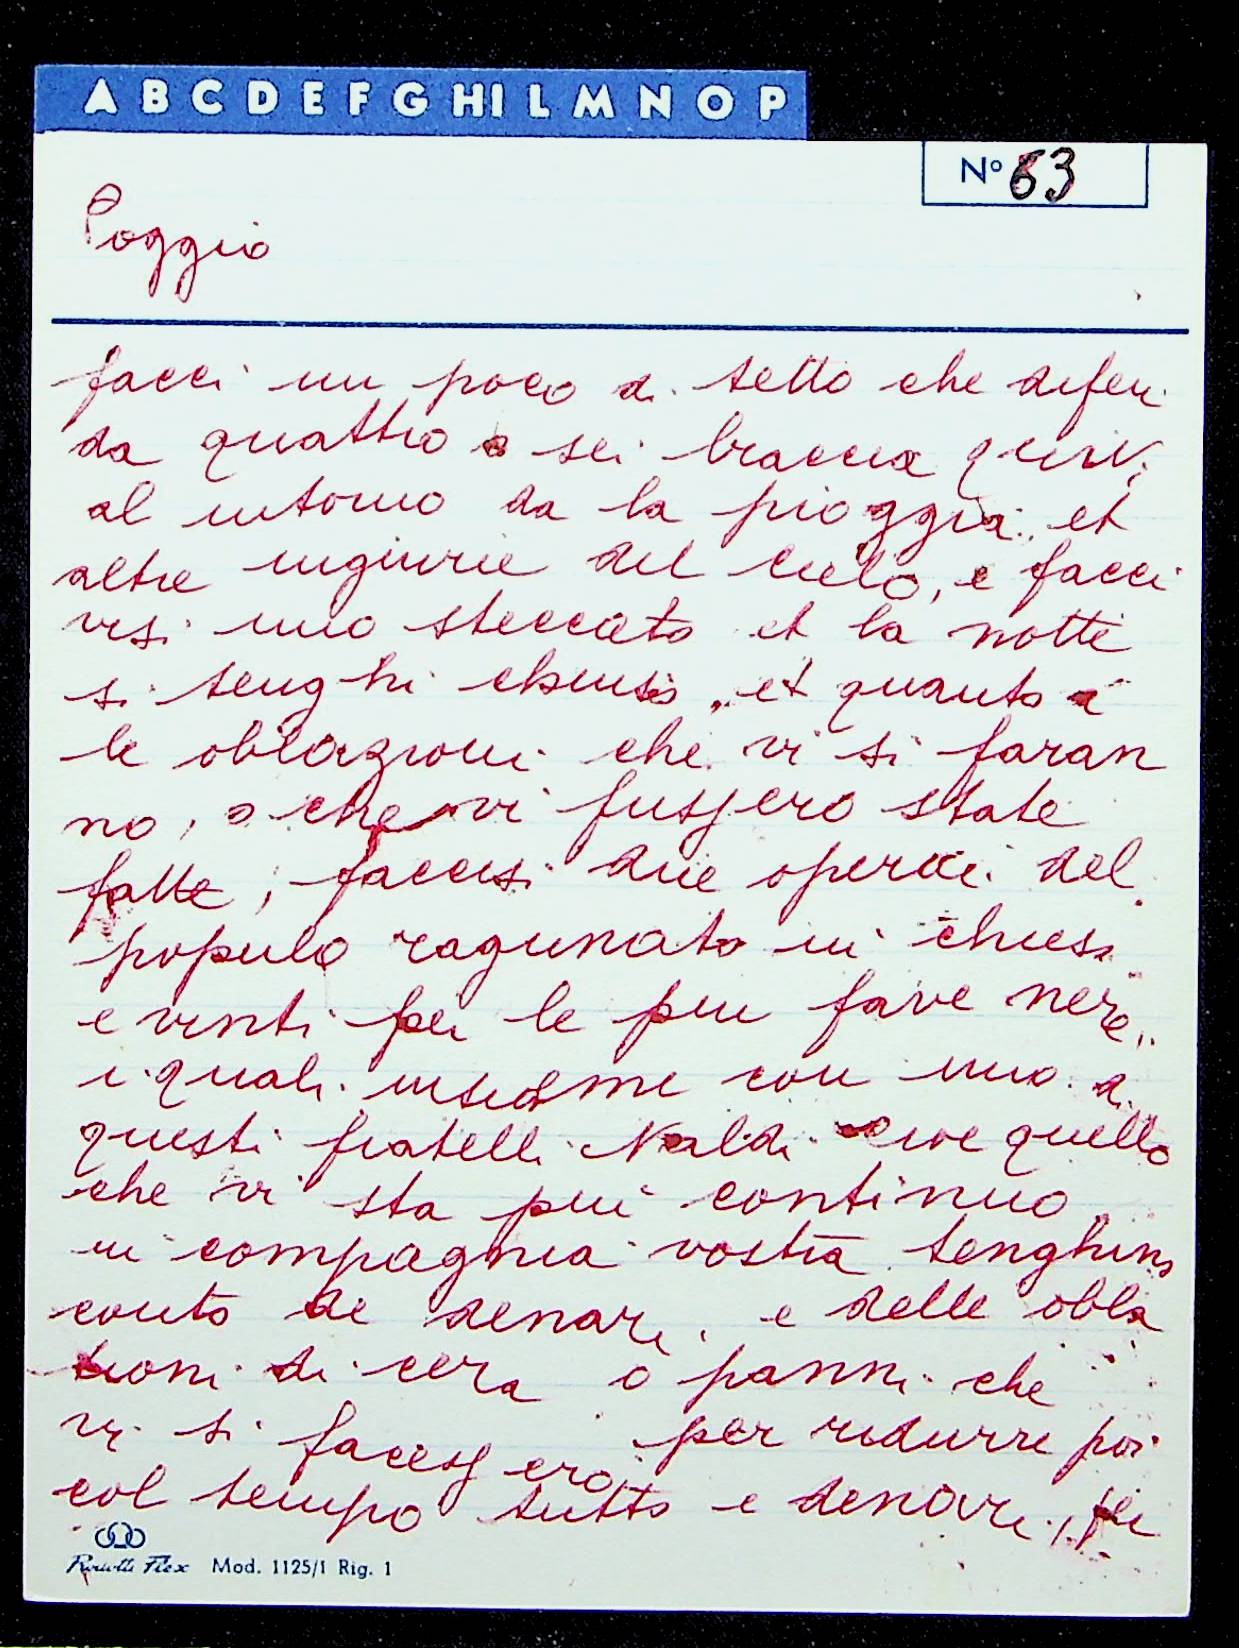 A B C D E F G HI L M N O P
Nº 63
Poggio
facci un poco di tetto che difen
da quattro o sei braccia quivi
al intorno da la pioggia et
altre ingiurie del cielo, e facci
visi uno steccato et la notte
si tenghi chiuso, et quanto a
le oblazioni che vi si faran
no, o che vi fussero state
fatte, faccisi due operai del
populo ragunato in chiesa
e vinti per le piu fave nere,
i quali insieme con uno di
questi fratelli Naldi cioe quello
che vi sta piu continuo
in compagnia vostra tenghino
conto de denari e delle obla
tioni di cera o panni che
vi si facessero per ridurre poi
col tempo tutto e denari, per
Mod. 1125/1 Rig. 1